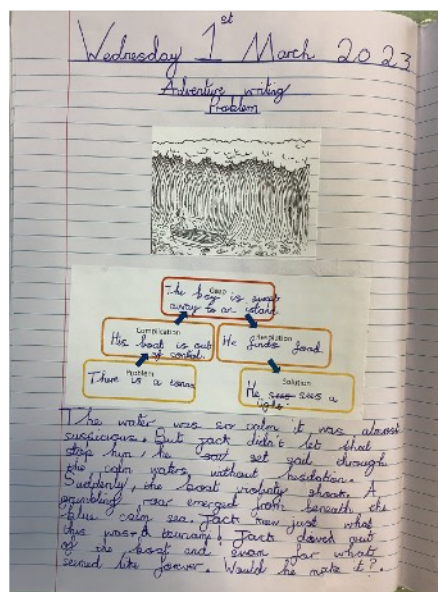 Wednesday 1st March 2023
Adventure writing
Problem
Gasp
The boy is swept
away to an island.
Complication
His boat is out
of control.
Resolution
He finds food
Problem
There is a
Solution
He sees a
The water was so calm it was almost
suspicious. But Jack didn't let that
stop him, he set sail through
the calm waters without hesitation.
Suddenly, the boat violently shook. A
rumbling roar emerged from beneath the
blue calm sea. Jack knew just what
this was- A tsunami! Jack out
of the boat and swam for what
seemed like forever. Would he make it?.